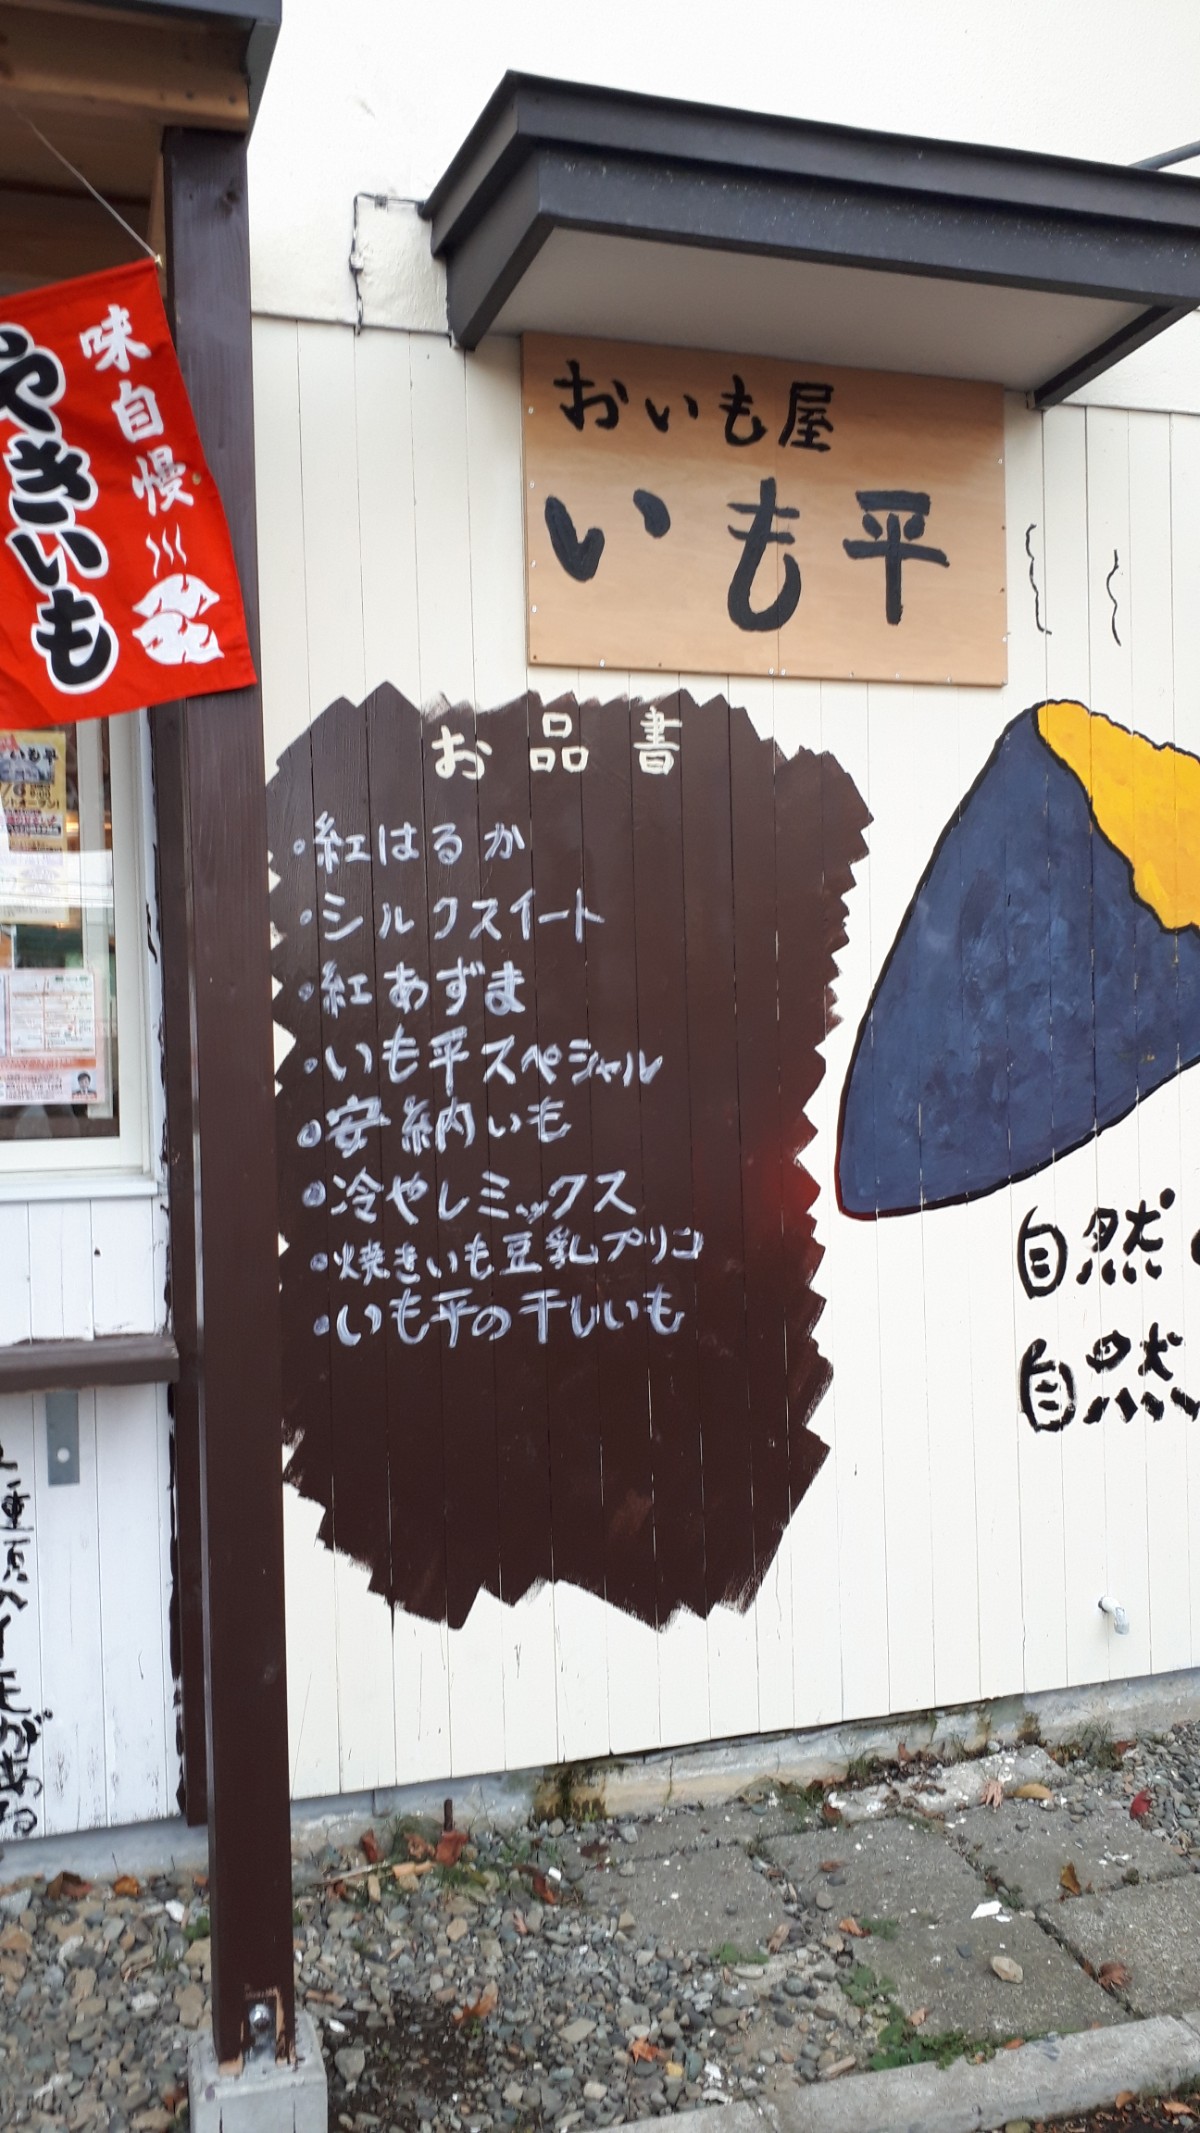 味自慢
やきいも
おいも屋
いも平
お品書
・紅はるか
・シルクスイート
・紅あずま
・いも平スペシャル
・安納いも
・冷やしミックス
・焼きいも豆乳プリン
・いも平の干しいも
自然
自然
いも平